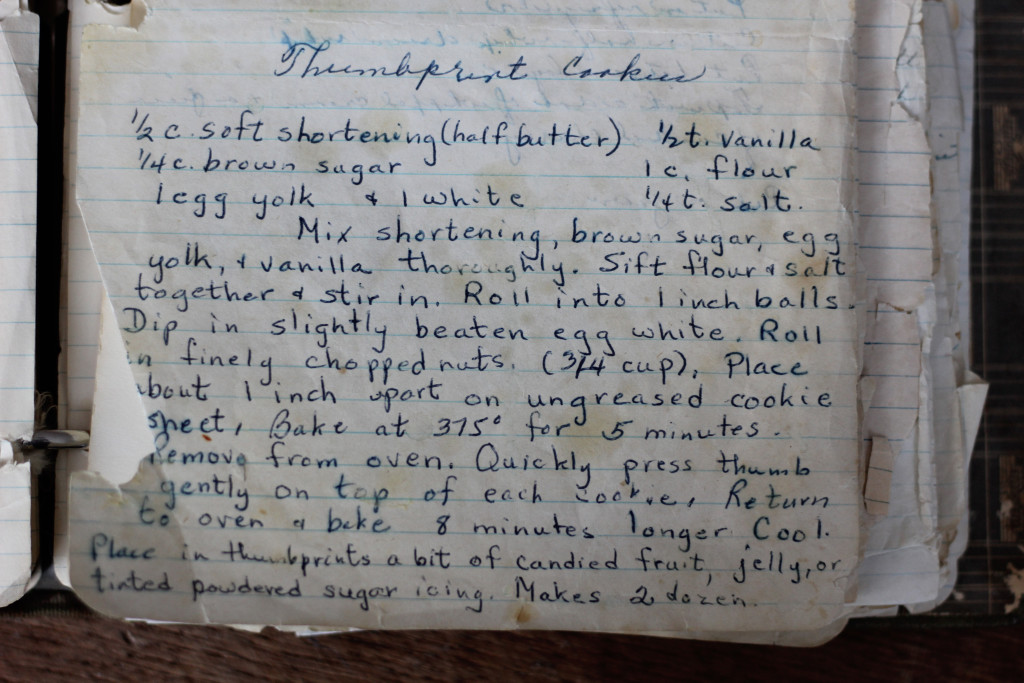 Thumbprint Cookies
1/2 c. soft shortening (half butter) 1/2 t. vanilla
1/4 c. brown sugar 1 c. flour
1 egg yolk & 1 white 1/4 t. salt.
Mix shortening, brown sugar, egg
yolk, & vanilla thoroughly. Sift flour & salt
together & stir in. Roll into 1 inch balls.
Dip in slightly beaten egg white. Roll
in finely chopped nuts. (3/4 cup), Place
about 1 inch apart on ungreased cookie
sheet, Bake at 375° for 5 minutes.
Remove from oven. Quickly press thumb
gently on top of each cookie, Return
to oven & bake 8 minutes longer. Cool.
Place in thumbprints a bit of candied fruit, jelly, or
tinted powdered sugar icing. Makes 2 dozen.